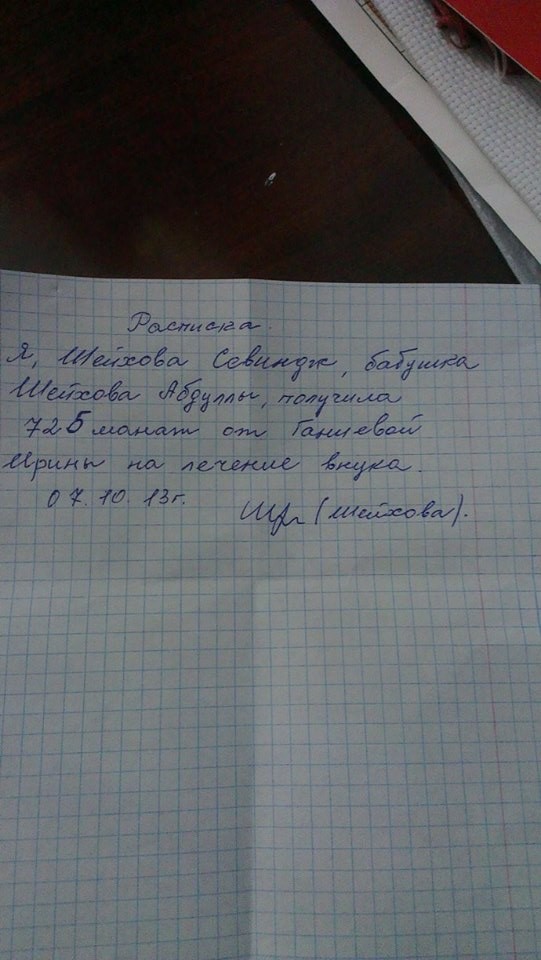 Расписка.
Я, Шейхова Севиндж, бабушка
Шейхова Абдуллы, получила
725 манат от Ганиевой
Ирины на лечение внука.
07.10.13г. (Шейхова).